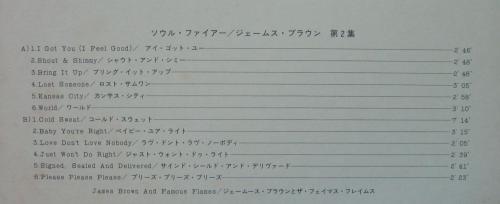 ソウル・ファイアー/ジェームス・ブラウン 第2集
A)1.I Got You (I Feel Good)/ アイ・ゴット・ユー 2′46″
2.Shout & Shimmy/ シャウト・アンド・シミー 2′48″
3.Bring It Up/ ブリング・イット・アップ 2′48″
4.Lost Someone/ ロスト・サムワン 3′05″
5.Kansas City/ カンサス・シティ 2′58″
6.World/ ワールド 3′10″
B)1.Cold Sweat/ コールド・スウェット 7′14″
2.Baby You're Right/ ベイビー・ユア・ライト 3′15″
3.Love Don't Love Nobody/ ラヴ・ドント・ラヴ・ノーボディ 2′05″
4.Just Won't Do Right/ ジャスト・ウォント・ドゥ・ライト 2′39″
5.Signed, Sealed And Delivered/ サインド・シールド・アンド・デリヴァード 2′41″
6.Please Please Please/ プリーズ・プリーズ・プリーズ 2′23″
James Brown And Famous Flames/ジェームース・ブラウンとザ・フェイマス・フレイムス